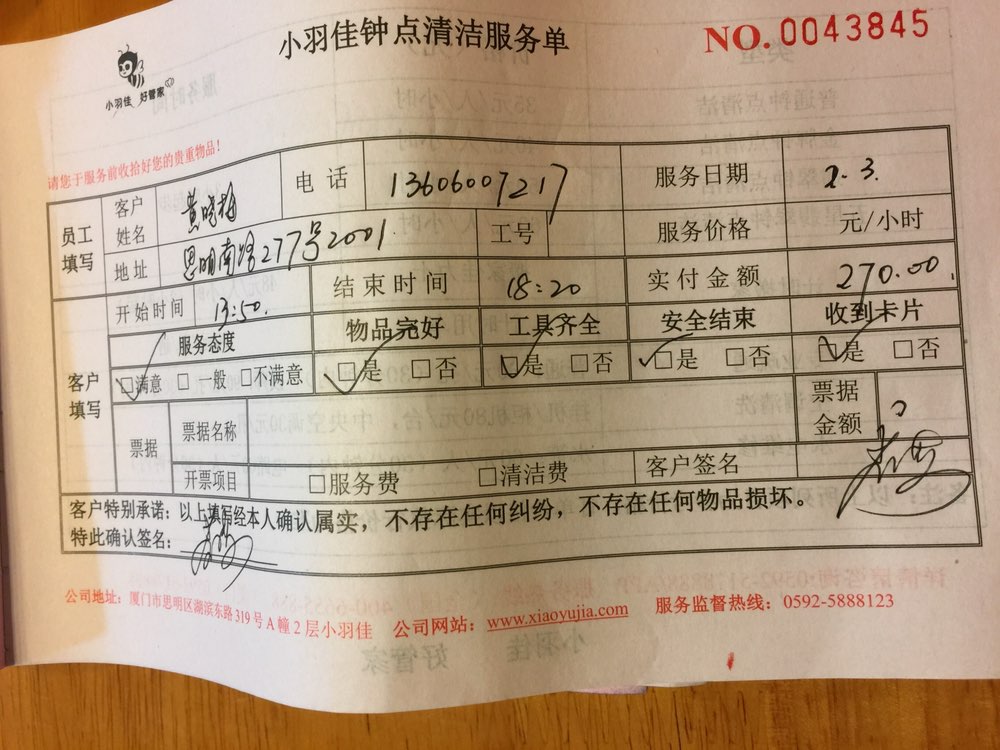 小羽佳钟点清洁服务单
NO. 0043845
小羽佳 好管家
请您于服务前收拾好您的贵重物品!
员工填写 客户姓名 黄晓梅 电话 13606007217 服务日期 2-3.
地址 思明南路277号2001 工号 服务价格 元/小时
开始时间 13:50. 结束时间 18:20 实付金额 270.00.
客户填写 服务态度 物品完好 工具齐全 安全结束 收到卡片
☑满意 □一般 □不满意 ☑是 □否 ☑是 □否 ☑是 □否 ☑是 □否
票据 票据名称 票据金额
开票项目 □服务费 □清洁费 客户签名
客户特别承诺:以上填写经本人确认属实,不存在任何纠纷,不存在任何物品损坏。
特此确认签名:
公司地址:厦门市思明区湖滨东路319号A幢2层小羽佳 公司网站:www.xiaoyujia.com 服务监督热线:0592-5888123